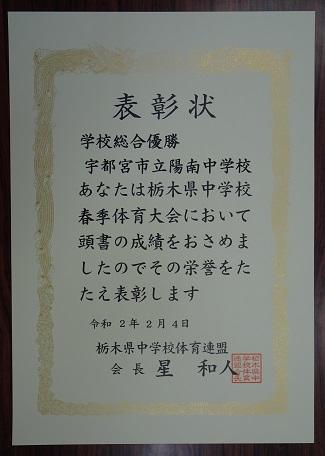 表彰状
学校総合優勝
宇都宮市立陽南中学校
あなたは栃木県中学校
春季体育大会において
頭書の成績をおさめま
したのでその栄誉をた
たえ表彰します
令和２年２月４日
栃木県中学校体育連盟
会長 星 和人
栃木県中
学校体育
連盟会長